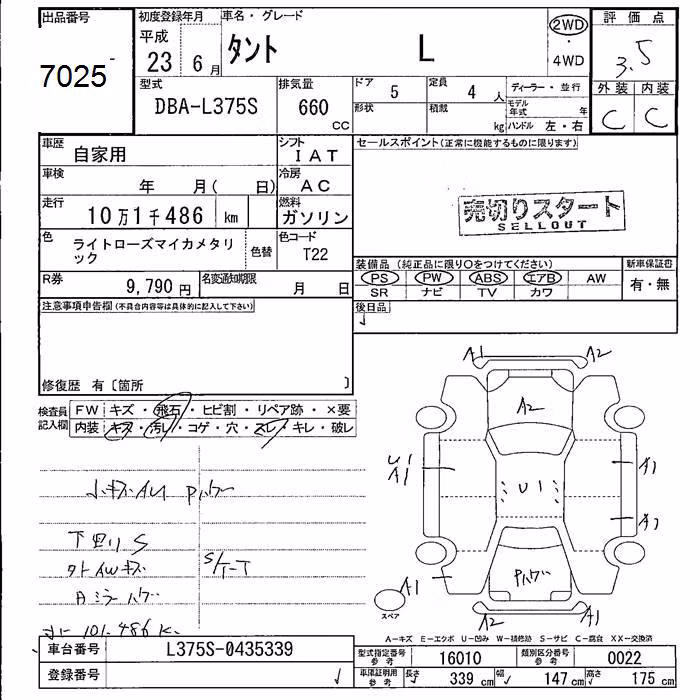 出品番号
7025
初度登録年月
平成
23 6月
車名・グレード
タント L
2WD
・
4WD
評価点
3.5
外装 内装
C C
型式
DBA-L375S
排気量
660
CC
ドア 5
定員 4人
形状
積載 kg
ディーラー・並行
モデル年式 年
ハンドル 左・右
車歴
自家用
シフト
IAT
車検
年 月( 日)
冷房
AC
走行
10万1千486 km
燃料
ガソリン
色
ライトローズマイカメタリック
色替
色コード
T22
R券
9,790円
名変通知期限
月 日
セールスポイント(正常に機能するものに限ります)
売切りスタート
SELLOUT
装備品(純正品に限り○をつけてください)
PS PW ABS エアB AW
SR ナビ TV カワ
新車保証書
有・無
後日品
注意事項申告欄(不具合内容等は具体的に記入して下さい)
修復歴 有〔箇所 〕
検査員記入欄
FW キズ・飛石・ヒビ割・リペア跡・×要
内装 キズ・汚レ・コゲ・穴・スレ・キレ・破レ
小キズAU Pハゲ
下回りS
外AWキズ
S/T-T
101.486K
A1 A2
A2
U1
A1
U1
A1
A1
A1
Pハゲ
A2 A1
スペア
A-キズ E-エクボ U-凹み W-補修跡 S-サビ C-腐食 XX-交換済
車台番号
L375S-0435339
登録番号
型式指定番号 参考
16010
類別区分番号 参考
0022
車検証明用 参考
長さ 339 cm 幅 147 cm 高さ 175 cm